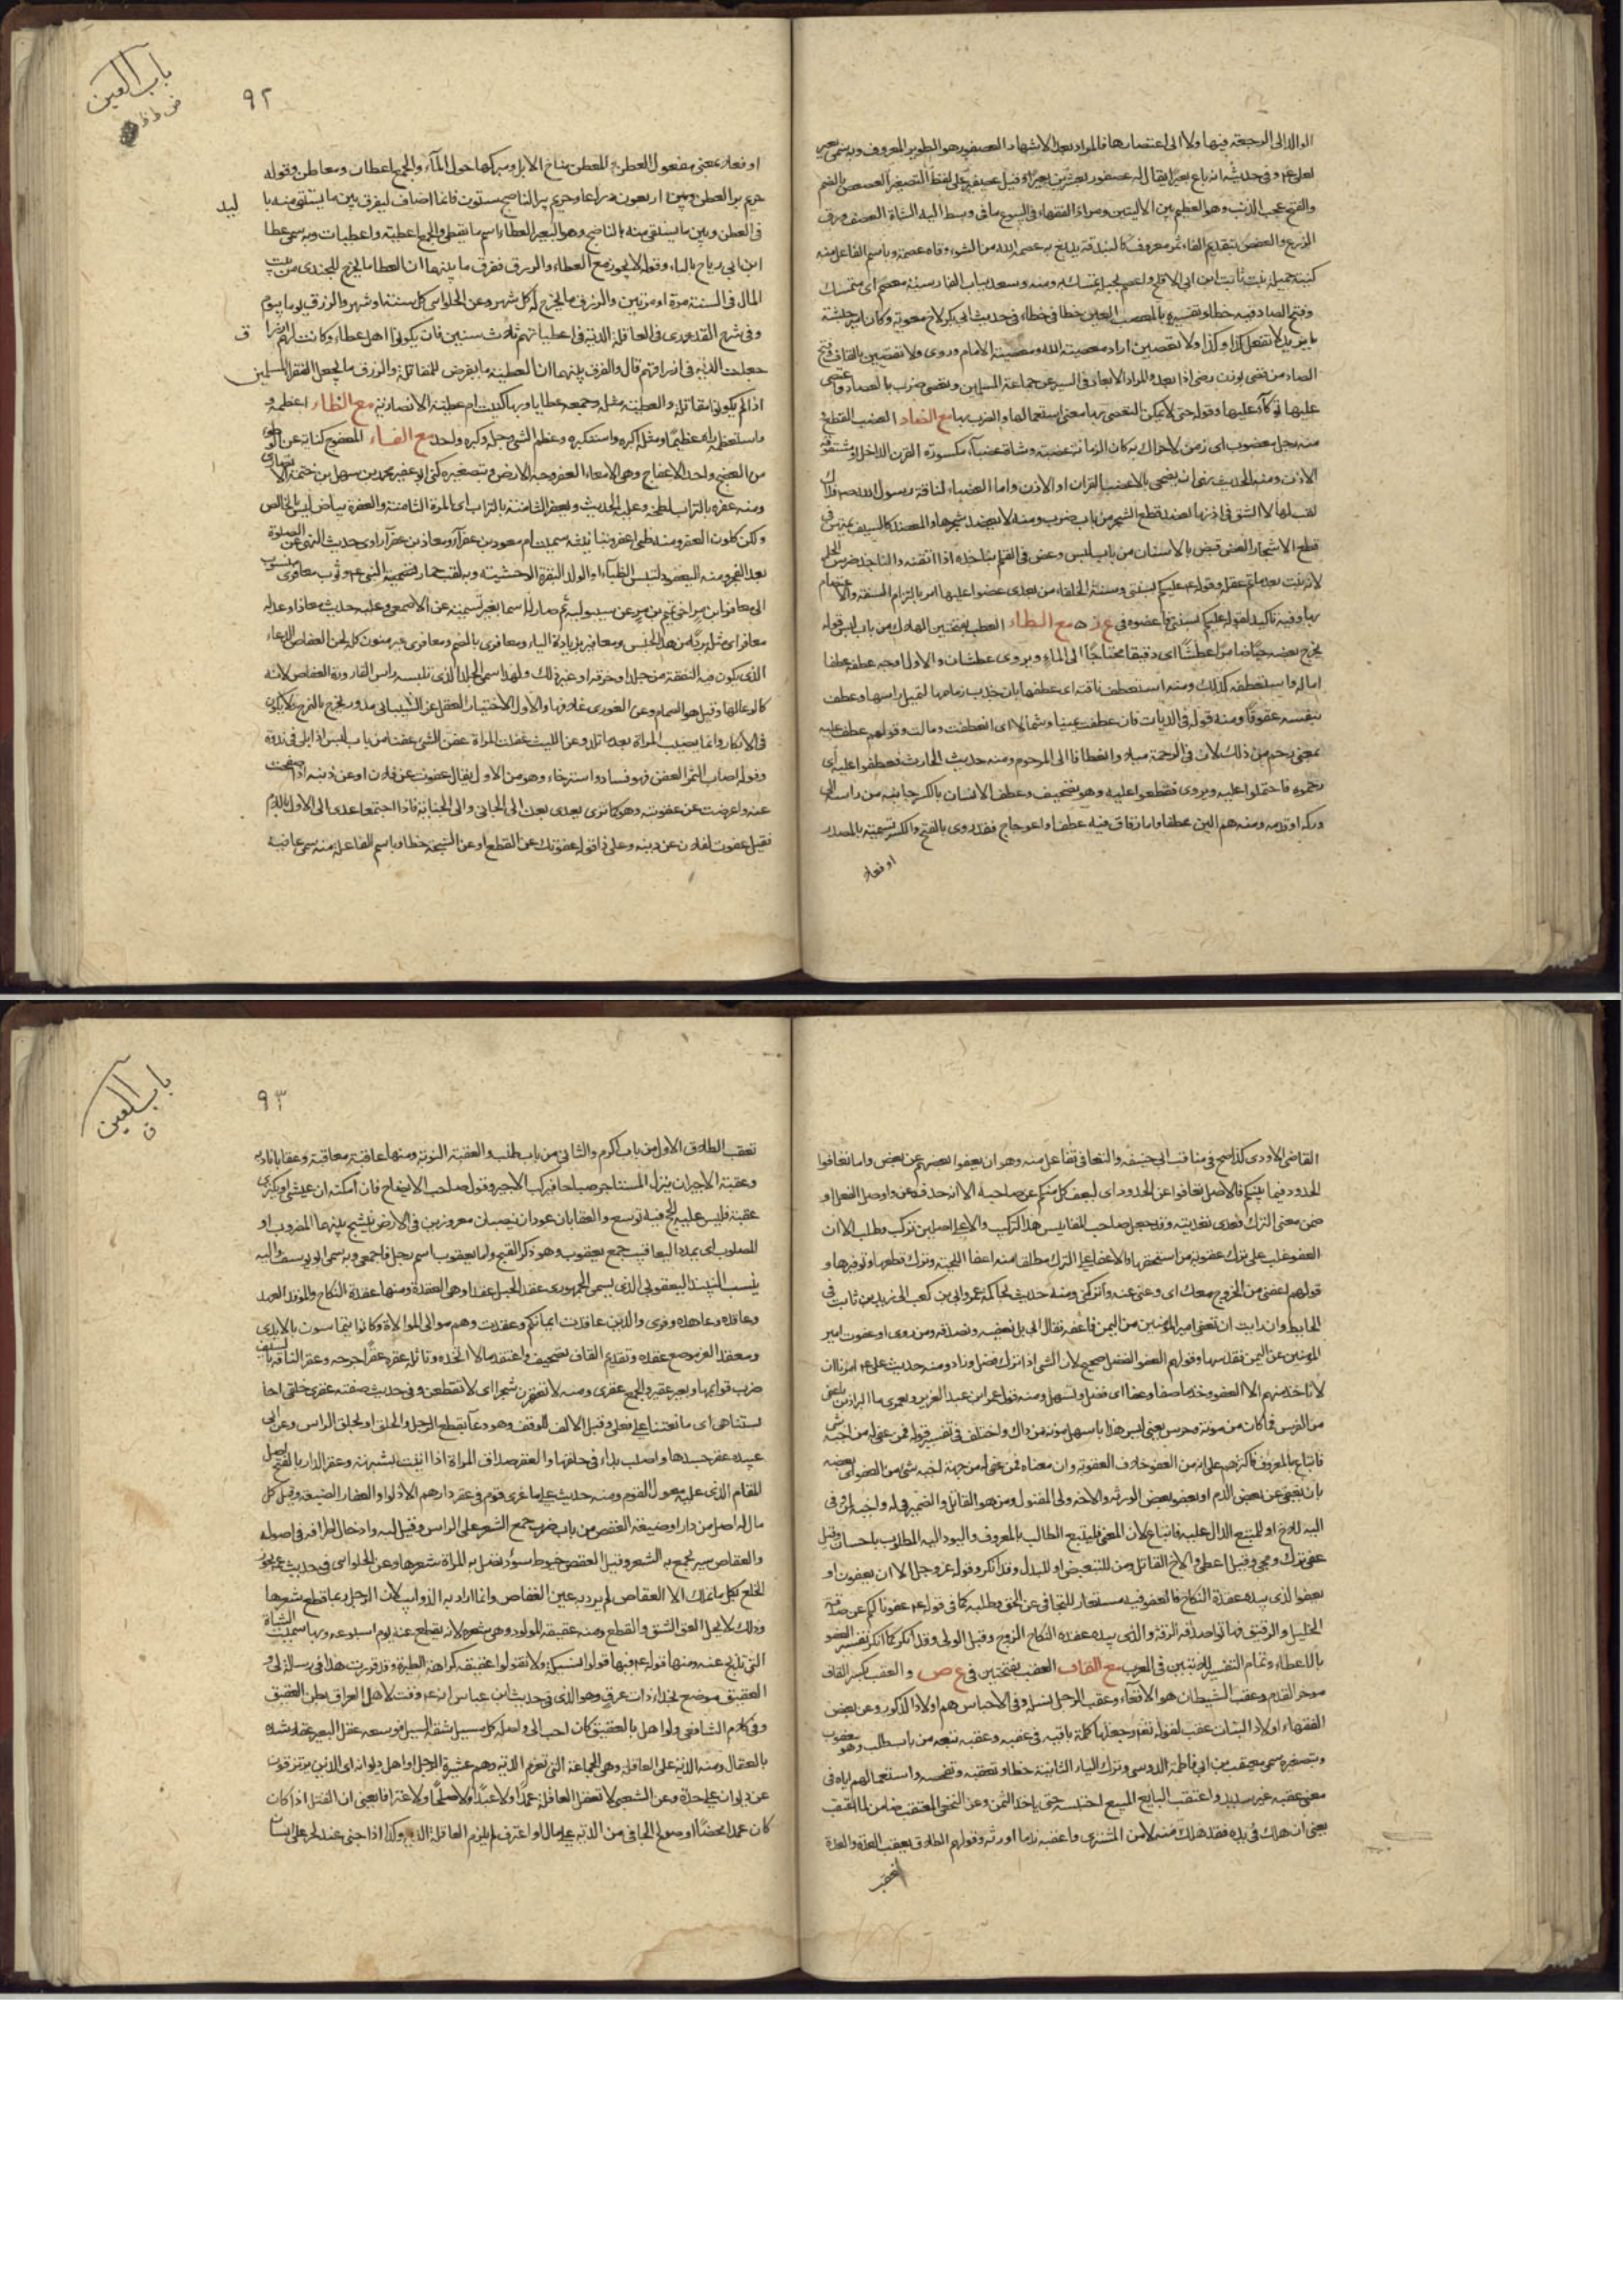 الوالد الى الرجعة فيها ولا الى اعتصارها فالمراد بعد الاشهاد العصفور هو الطوير المعروف وبه سمى بعير
لعلى وفى حديثه انه باع بعيرا يقال له عصفور بعشرين بعيرا وقيل عصيفير على لفظ التصغير العصعص بالضم
والفتح عجب الذنب وهو العظم بين الاليتين ومراد الفقهاء فى البيوع ما فى وسط الية الشاة العصف ورق
الزرع والعفص بتقديم الفاء ثمر معروف كالبندقة يدبغ به عصمه الله من السوء وقاه عصمة وباسم الفاعل منه
كنية جميلة بنت ثابت ابن ابى الاقلح واعصم بحبله تمسك به ومنه
وفتح الصاد فيه خطا وتفسيره بالمعصب العين خطا فى خطاء فى حديث ابى بكر لاخ
لا تفعل كذا وكذا ولا تعصين اراد معصية الله ومعصية الامام وروى ولا تقصين بالقاف وفتح
الصاد من تقصى بوزن يرضى اذا بعد والمراد الابعاد فى السير عن جماعة المسلمين وتعصى ضرب بالعصا
عليها توكأ عليها وقوله حتى لا يمكن التعصى بها معنى استعمالها والضرب بها مع الضاد العضب القطع
منه رجل معضوب اى زمن لا حراك به كان الزمانة عضبته وشاة عضباء مكسورة القرن الداخل او مشقوقة
الاذن ومنه الحديث نهى ان يضحى بالاعضب القرن او الاذن واما العضباء لناقة رسول الله
لقب لها لا لشق فى اذنها العضد قطع الشجر من باب ضرب ومنه لا يعضد شجرها والمعضد كالسيف يمتهن فى
قطع الاشجار العض قبض بالاسنان من باب لبس وعض فى العلم بناجذه اذا اتقنه والناجذ ضرس الحلم
لانه ينبت بعد ما تم عقله وقوله عليكم بسنتى وسنة الخلفاء من بعدى عضوا عليها امر بالتزام السنة والاعتصام
بها وفيه تاكيد لقوله عليكم بسنتى مع الطاء العطب بفتحتين الهلاك من باب لبس قوله
يخرج بعضه عطشا اى دقيقا محتاجا الى الماء ويروى عطشان والاول اوجه عطفه عطفا
اماله واستعطفه كذلك ومنه استعطف ناقته اى عطفها بان جذب زمامها لتميل راسها وعطف
بنفسه عقوقا ومنه قوله فى الديات فان عطفت يمينا وشمالا اى انعطفت ومالت وقولهم عطف عليه
بمعنى رحم من ذلك لان فى الرحمة ميلا وانعطافا الى المرحوم ومنه حديث الحارث فعطفوا عليه اى
رحموه فاحتملوا عليه ويروى فقطعوا عليه وهو تصحيف وعطف الانسان بالكسر جانبه من راسه الى
وركه او قدمه ومنه هم الين عطفا واما زقاق فيه عطف او اعوجاج فقد روى بالفتح والكسر تسمية بالمصدر
او فعلا
باب العين
٩٢
او فعلا بمعنى مفعول العطن والمعطن مناخ الابل ومبركها حول الماء والجمع اعطان ومعاطن وقوله
حريم بئر العطن اربعون ذراعا وحريم بئر الناضح ستون فانما اضاف ليفرق بين ما يستقى منه باليد
فى العطن وبين ما يستقى منه بالناضح وهو البعير العطاء اسم ما يعطى والجمع اعطية واعطيات وبه سمى عطا
ابن ابى رباح بالباء وقوله لا يجوز بيع العطاء والرزق ففرق ما بينهما ان العطا ما يخرج للجندى من بيت
المال فى السنة مرة او مرتين والرزق ما يخرج له كل شهر وعن الحلوانى كل سنة او شهر والرزق يوما بيوم
وفى شرح القدورى فى العاقلة الدية فى اعطياتهم ثلاث سنين فان يكونوا اهل عطاء وكانت لهم ارزاق
جعلت الدية فى ارزاقهم قال والفرق بينهما ان العطية ما يفرض للمقاتلة والرزق ما يجعل لفقراء المسلمين
اذا لم يكونوا مقاتلة والعطية مثله وجمعه عطايا وبها كنيت ام عطية الانصارية مع الظاء اعظمه
واستعظمه راه عظيما ومثله اكبره واستكبره وعظم الشى وجله وكبره واحد مع الفاء
من العفج واحد الاعفاج وهى الامعاء العفر وجه الارض وبتصغيره كنى ابو عفير محمد بن سهل بن ختمة
ومنه عفره بالتراب لطخه وعليه الحديث ويعفر الثامنة بالتراب اى المرة الثامنة والعفرة بياض ليس بالخالص
ولكن كلون العفر ومنه ظبى اعفر وبتانيثه سميت ام معوذ بن عفراء ومعاذ بن عفراء راوى حديث النهى عن الصلوة
بعد الفجر ومنه اليعفور لتيس الظباء او لولد البقرة الوحشية وبه لقب حمار النبى وثوب معافرى منسوب
الى معافر ابن مر اخى تميم بن مر عن سيبويه ثم صار له اسما بغير نسبة عن الاصمعى وعليه حديث معاذ او عدله
معافر اى مثله بردا من هذا الجنس ومعافير بزيادة الياء ومعافرى بالضم ومعافرى غير منون كله لحن العفاص الوعاء
الذى يكون فيه النفقة من جلد او خرقة او غير ذلك ولهذا سمى الجلد الذى تلبسه راس القارورة العفاص لانه
كالوعاء لها وقيل هو الصمام وعن الغورى غلافها والاول الاختيار العفل عن الشيبانى مدور يخرج بالفرج ولا يكون
فى الابكار وانما يصيب المراة بعد ما تلد وعن الليث عفلت المراة عفن الشى عفنا من باب لبس اذا بلى فى ندوة
وقوله اصاب الثمر العفن فهو فساد واسترخاء وهو من الاول يقال عفوت عن فلان او عن ذنبه اذا صفحت
عنه واعرضت عن عقوبته وهو كما ترى يعدى بعن الى الجانى والى الجناية فاذا اجتمعا عدى الى الاول باللام
فقيل عفوت لفلان عن ذنبه وعلى ذا قوله عفوتك عن القطع او عن الشجة خطا وباسم الفاعلة منه سمى عافية
القاضى الاودى كذا صح فى مناقب ابى حنيفة والتعافى تفاعل منه وهو ان يعفوا بعضهم عن بعض واما تعافوا
الحدود فيما بينكم فالاصل تعافوا عن الحدود اى ليعف كل منكم عن صاحبه الا انه حذف عن واوصل الفعل او
ضمن معنى الترك فعدى تعديته وقد جعل صاحب المقاييس هذا التركيب
العفو غلب على ترك عقوبة من استحقها والاعفاء على الترك مطلقا منه اعفا اللحية وترك قطعها وتوفيرها و
قولهم اعفنى من الخروج معك اى دعنى عنه واتركنى ومنه حديث محاكمة عمر وابى بن كعب الى زيد بن ثابت فى
الحايط وان رايت ان تعفى امير المؤمنين من اليمين فاعفه فقال ابى بل نعفيه ونصدقه ومن روى او عفوت امير
المؤمنين عن اليمين فقد سها وقولهم العفو الفضل صحيح لان الشى اذا ترك فضل وزاد ومنه حديث على امرنا ان
لا ناخذ منهم الا العفو وخذ ما صفا وعفا اى فضل وتسهل ومنه قول عمر ابن عبد العزيز ولعمرى ما البراذين
من الفرس فيما كان من مؤنة وحرس يعنى ليس هذا باسهل مؤنة من ذاك واختلف فى تفسير قوله فمن عفى له من اخيه شى
فاتباع بالمعروف فاكثرهم على انه من العفو خلاف العقوبة وان معناه فمن عفى له من جهة اخيه شى من العفو
بان يعفى عن بعض الدم او يعفو بعض الورثة والاخ ولى المقتول ومن هو القاتل والضمير فى له واخيه لمن وفى
اليه للاخ او للمتبع الدال عليه فاتباع لان المعنى فليتبع الطالب بالمعروف واليؤد اليه المطلوب باحسان وقيل
عفى ترك ومحى وقيل اعطى والاخ القاتل ومن للتبعيض او للبدل وقد انكر وقوله عز وجل الا ان يعفون او
يعفوا الذى بيده عقدة النكاح فالعفو فيه مستعار للتجافى عن الحق وطلبه كما فى قوله عفونا لكم عن صدقة
الخيل والرقيق فهاتوا صدقة الرقة والذى بيده عقدة النكاح الزوج وقيل الولى وقد انكر كما انكر تفسير العفو
بالاعطاء وتمام التفسير للايتين فى المعرب مع القاف العقب بفتحتين فى ع ص والعقب بكسر القاف
موخر القدم وعقب الشيطان هو الاقعاء وعقب الرجل نسله وفى الاحباس هم اولاد الذكور وعن بعض
الفقهاء اولاد البنات عقب لقوله تعالى وجعلها كلمة باقية فى عقبه وعقبه تبعه من باب طلب وهو يعقوب
وبتصغيره سمى معيقيب بن ابى فاطمة الدوسى وترك الياء الثانية خطا وتعقبه وتفحصه واستعمالهم اياه فى
معنى عقبه غير سديد واعتقب البايع المبيع احتبسه حتى ياخذ الثمن وعن النخعى المعتقب ضامن لما اعتقب
يعنى ان هلك فى يده فقد هلك منه لا من المشترى واعقبه ندما اورثه وقولهم الطلاق يعقب العدة والعدة
تعقب
باب العين
ق
٩٣
تعقب الطلاق الاول من باب اكرم والثانى من باب طلب والعقبة النوبة ومنها عاقبه معاقبة وعقابا ناوبه
وعقبة الاجير ان ينزل المستاجر صباحا فيركب الاجير وقول صاحب الايضاح فان امكنه ان يمشى او يكترى
عقبة فليس عليه الحج فيه توسع والعقابان عودان ينصبان مغروزين فى الارض يشبح بينهما المضروب او
المصلوب اى يمد اليعاقيب جمع يعقوب وهو ذكر القبج واما يعقوب اسم رجل فاعجمى وبه سمى ابو يوسف واليه
ينسب النبيذ اليعقوبى الذى يسمى الجمهورى عقد الحبل عقدا وهى العقدة ومنها عقدة النكاح والعقد العهد
وعاقده وعاهده وقرى والذين عاقدت ايمانكم وعقدت وهم موالى الموالاة وكانوا يتماسحون بالايدى
ومعقد العز موضع عقده وتقديم القاف تصحيف واعتقد مالا اتخذه وتاثله عقره عقرا جرحه وعقر الناقة بالسيف
ضرب قوائمها وبعير عقير والجمع عقرى ومنه لا تعقرن شجرا اى لا تقطعن وفى حديث صفية عقرى حلقى
على فعلى وقيل الالف للوقف وهو دعا بقطع الرجل والحلق او بحلق الراس وعن ابى
عبيد عقر جسدها واصيب بداء فى حلقها والعقر صداق المراة اذا اتيت بشبهة وعقر الدار بالفتح اصل
المقام الذى عليه معول القوم ومنه حديث على ما غزى قوم فى عقر دارهم الا ذلوا والعقار الضيعة وقيل كل
مال له اصل من دار او ضيعة العقص من باب ضرب جمع الشعر على الراس وقيل ليه وادخال اطرافه فى اصوله
والعقاص سير يجمع به الشعر وقيل العقص خيوط سود تصل به المراة شعرها وعن الحلوانى فى حديث
الخلع بكل ما تملك الا العقاص لم يرد به عين العقاص وانما اراد به الذوائب لان الرجل ربما قطع شعرها
وذلك لا يحل العق الشق والقطع ومنه عقيقة المولود وهى شعره لانه يقطع عنه يوم اسبوعه وبها سميت الشاة
التى تذبح عنه ومنها قوله فيها قولوا نسيكة ولا تقولوا عقيقة كراهة الطيرة وقد قررت هذا فى رسالة لى و
العقيق موضع بحذاء ذات عرق وهو الذى فى حديث ابن عباس انه وقت لاهل العراق بطن العقيق
وفى كلام الشافعى ولو اهل بالعقيق كان احب الى واصله كل مسيل شقه السيل فوسعه عقل البعير عقلا شده
بالعقال ومنه الدية على العاقلة وهى الجماعة التى تغرم الدية وهم عشيرة الرجل او اهل ديوانه اى الذين يرتزقون
عن ديوان على حدة وعن الشعبى لا تعقل العاقلة عمدا ولا عبدا ولا صلحا ولا اعترافا يعنى ان القتل اذا كان
كان عمدا محضا او صولح الجانى من الدية على مال او اعترف لم يلزم العاقلة الدية وكذا اذا جنى عبد لحر على انسان